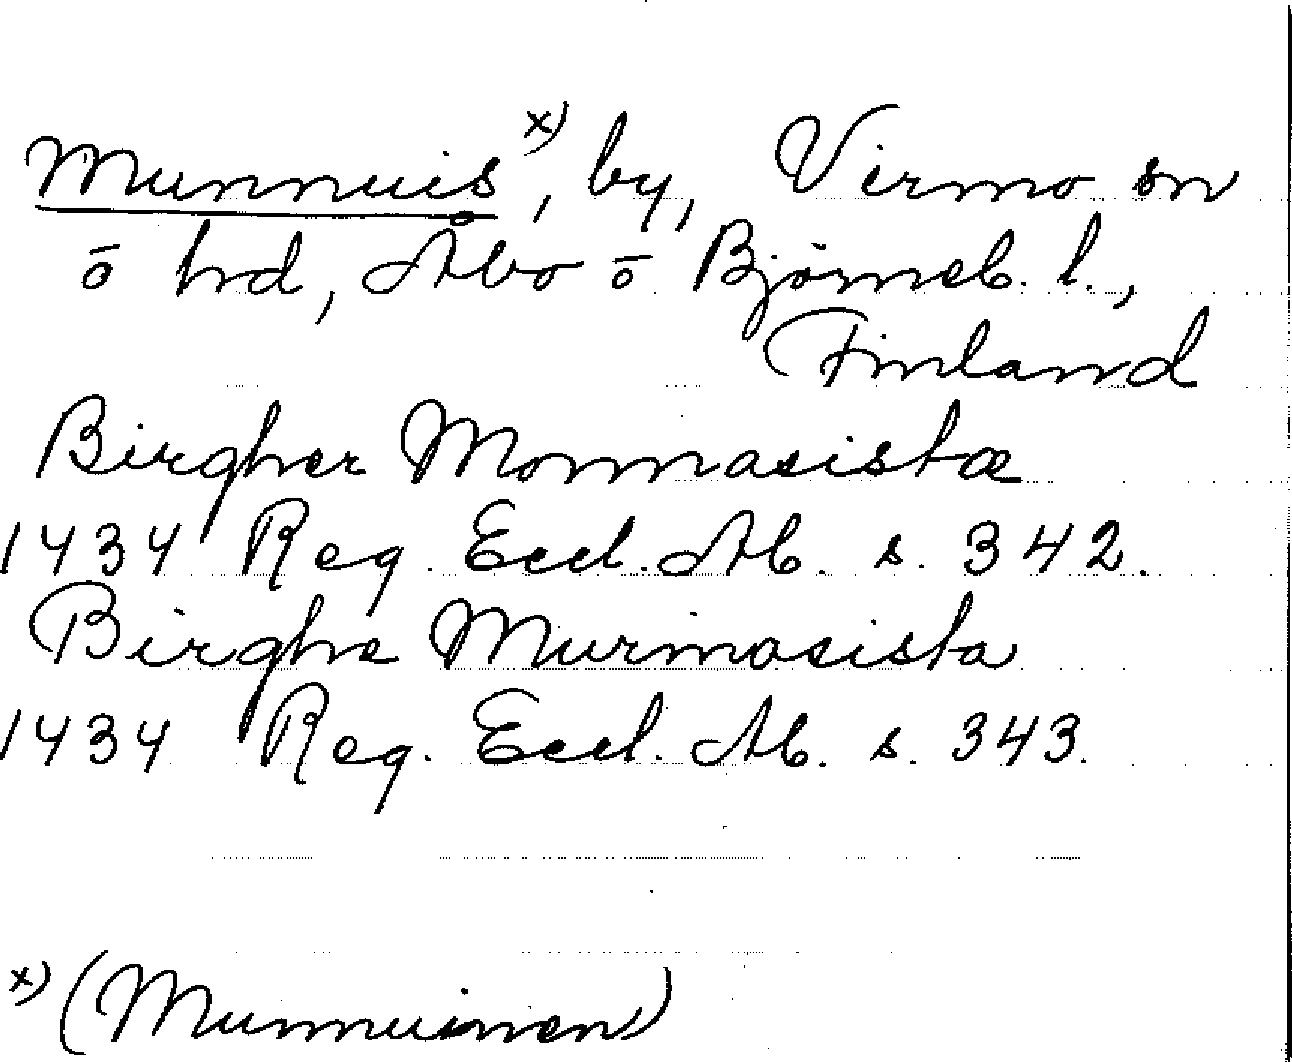 Munnuis x), by, Virmo sn
ō hd, Åbo ō Björneb. l.,
Finland
Birgher Monnasistæ
1434 Reg. Eccl. Ab. s. 342.
Birghe Murmasista
1434 Reg. Eccl. Ab. s. 343.
x) (Munnuinen)